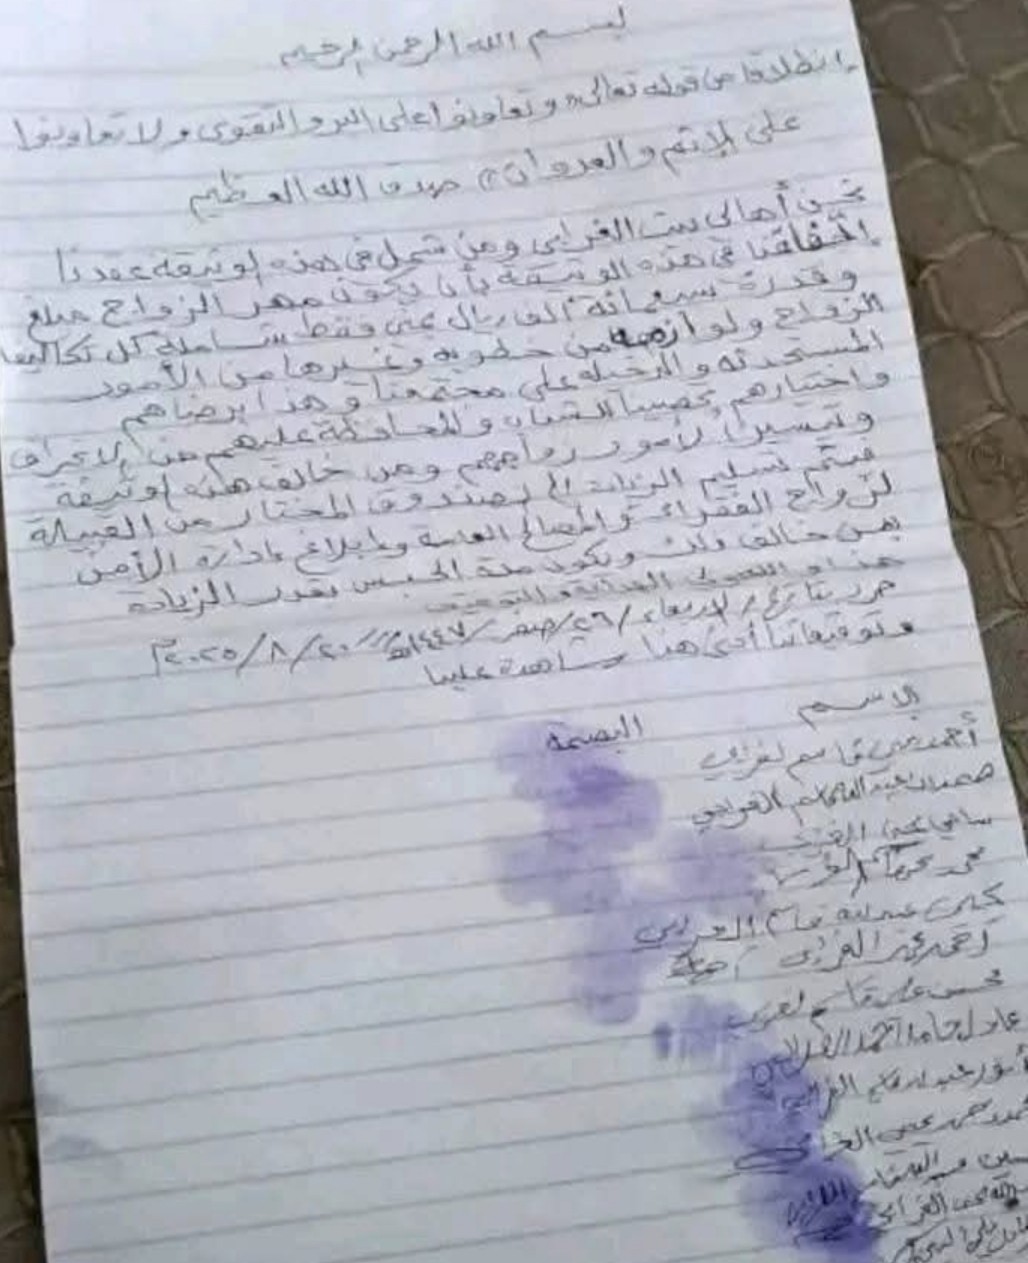 بسم الله الرحمن الرحيم
انطلاقا من قوله تعالى «وتعاونوا على البر والتقوى ولا تعاونوا
على الإثم والعدوان» صدق الله العظيم
نحن أهالي بيت الغرابي ومن شمل في هذه الوثيقة عقدنا
اتفاقنا في هذه الوثيقة بأن يكون مهر الزواج مبلغ
وقدرة سبعمائة ألف ريال يمني فقط شاملة كل تكاليف
الزواج ولوازمه من خطوبه وغيرها من الأمور
المستحدثه والدخيله على مجتمعنا وهذا برضاهم
واختيارهم تحصيناً للشباب وللمحافظة عليهم من الانحراف
وتيسيراً لأمور زواجهم ومن خالف هذه الوثيقة
فيتم تسليم الزيادة إلى صندوق المختار من القبيلة
لزواج الفقراء والمصالح العامة وابلاغ إدارة الأمن
بمن خالف ذلك وتكون مدة الحبس بقدر الزيادة
هذا و
حرر بتاريخ / الاربعاء / ٢٦ / صفر / ١٤٤٧هـ ٢٠ / ٨ / ٢٠٢٥م
وتوقيعاتنا أدنى هذا شاهدة علينا
الاسم البصمة
أحمد يحيى قاسم الغرابي
الغرابي
سامي يحيى
محمد
عبدالله قاسم الغرابي
أحمد الغرابي
محسن علي قاسم الغرابي
عادل أحمد الغرابي
أنور عبدالله قاسم الغرابي
يحيى الغرابي
الغرابي